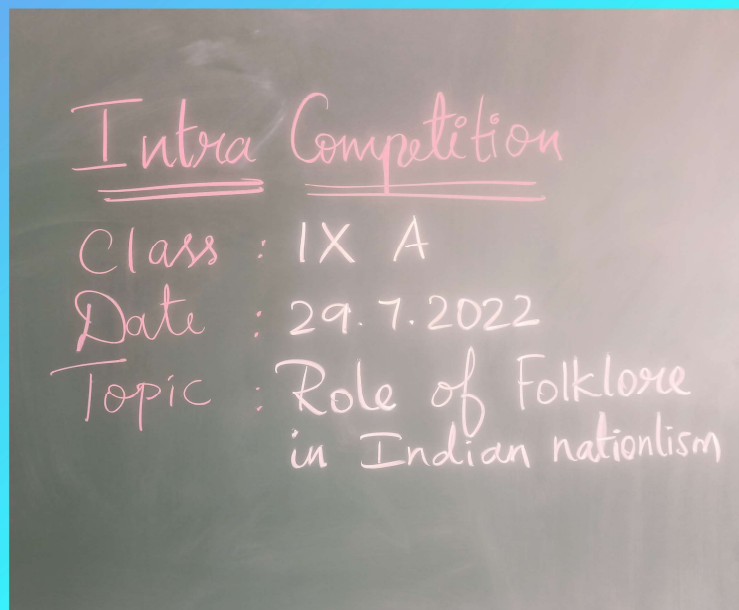 Intra Competition
Class : IX A
Date : 29.7.2022
Topic : Role of Folklore
in Indian nationlism